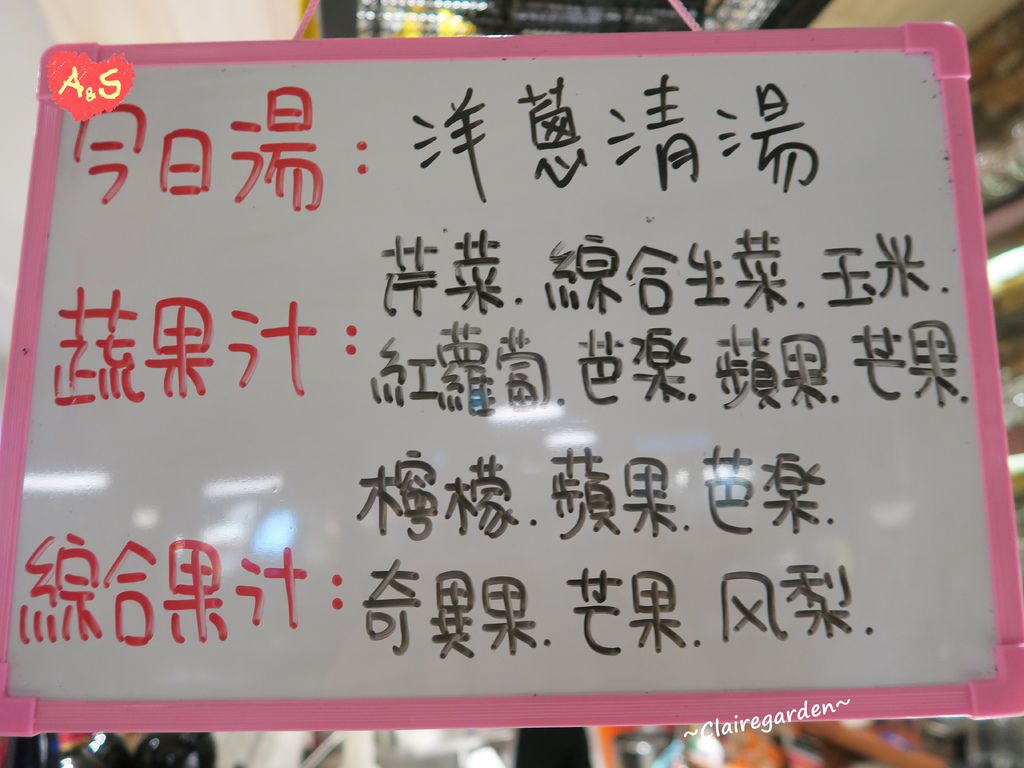 A&S
今日湯：洋蔥清湯
芹菜.綜合生菜.玉米.
蔬果汁：
紅蘿蔔.芭楽.蘋果.芒果.
檸檬.蘋果.芭楽.
綜合果汁：
奇異果.芒果.风梨.
~Clairegarden~